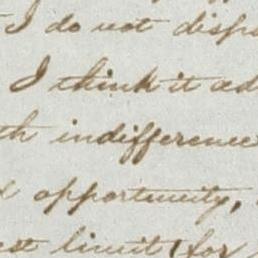 I do not disp
I think it ad
th indifference
opportunity,
est limit for